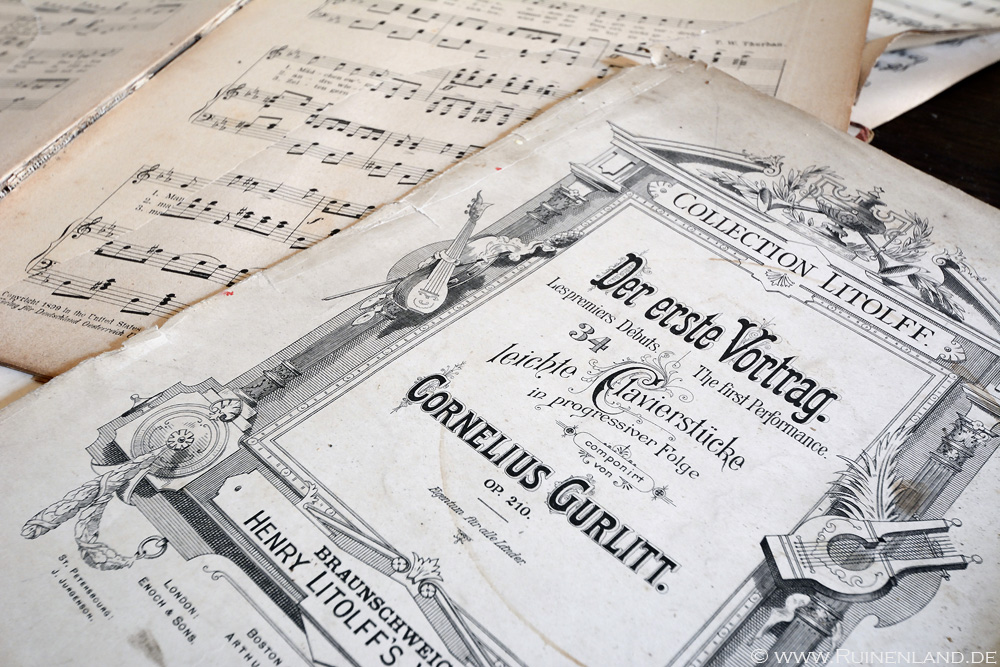 T. W. Thurban.
1. Mäd - chen
1. May
2. mu
3. mi
Copyright 1899 in the United States
COLLECTION LITOLFF.
Der erste Vortrag.
Les premiers Débuts. The first Performance.
34
leichte Clavierstücke
in progressiver Folge
componirt
von
CORNELIUS GURLITT.
OP. 210.
Eigentum für alle Länder.
BRAUNSCHWEIG
HENRY LITOLFF'S
ST. PETERSBOURG:
J. JURGENSON.
LONDON:
ENOCH & SONS.
BOSTON
ARTHU
© WWW.RUINENLAND.DE